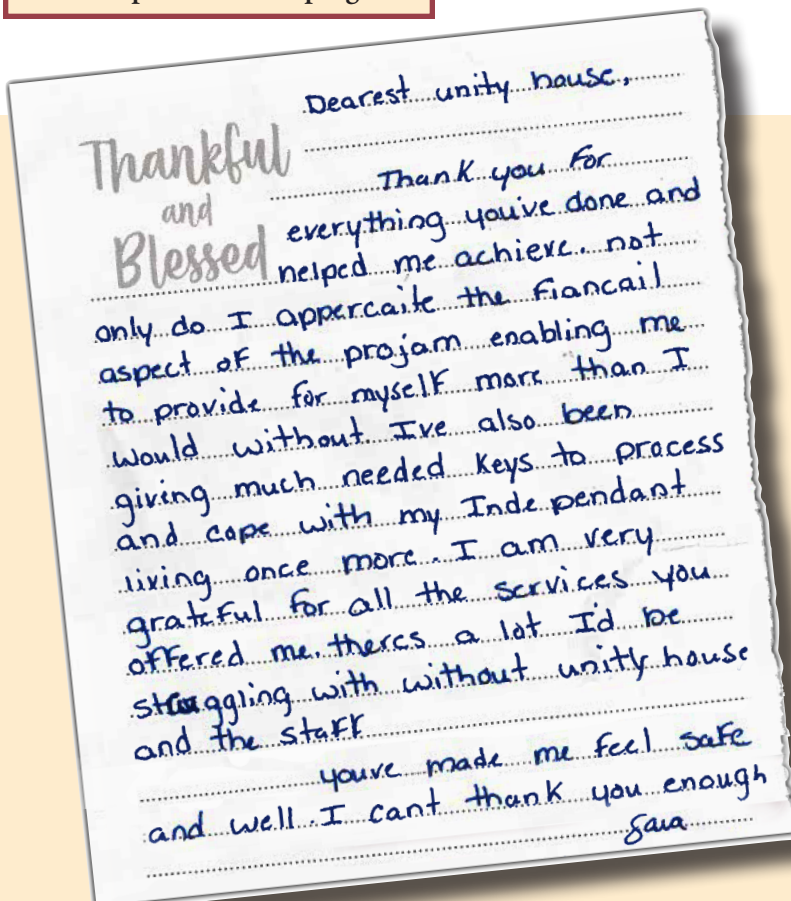 Dearest unity house,
Thankful
and
Blessed
Thank you for
everything you've done and
helped me achieve. not
only do I appercaite the fiancail
aspect of the projam enabling me
to provide for myself more than I
would without. Ive also been
giving much needed Keys to process
and cope with my Independant
living once more. I am very
grateful for all the services you
offered me. theres a lot I'd be
struggling with without unity house
and the staff
youve made me feel safe
and well. I cant thank you enough
Sara